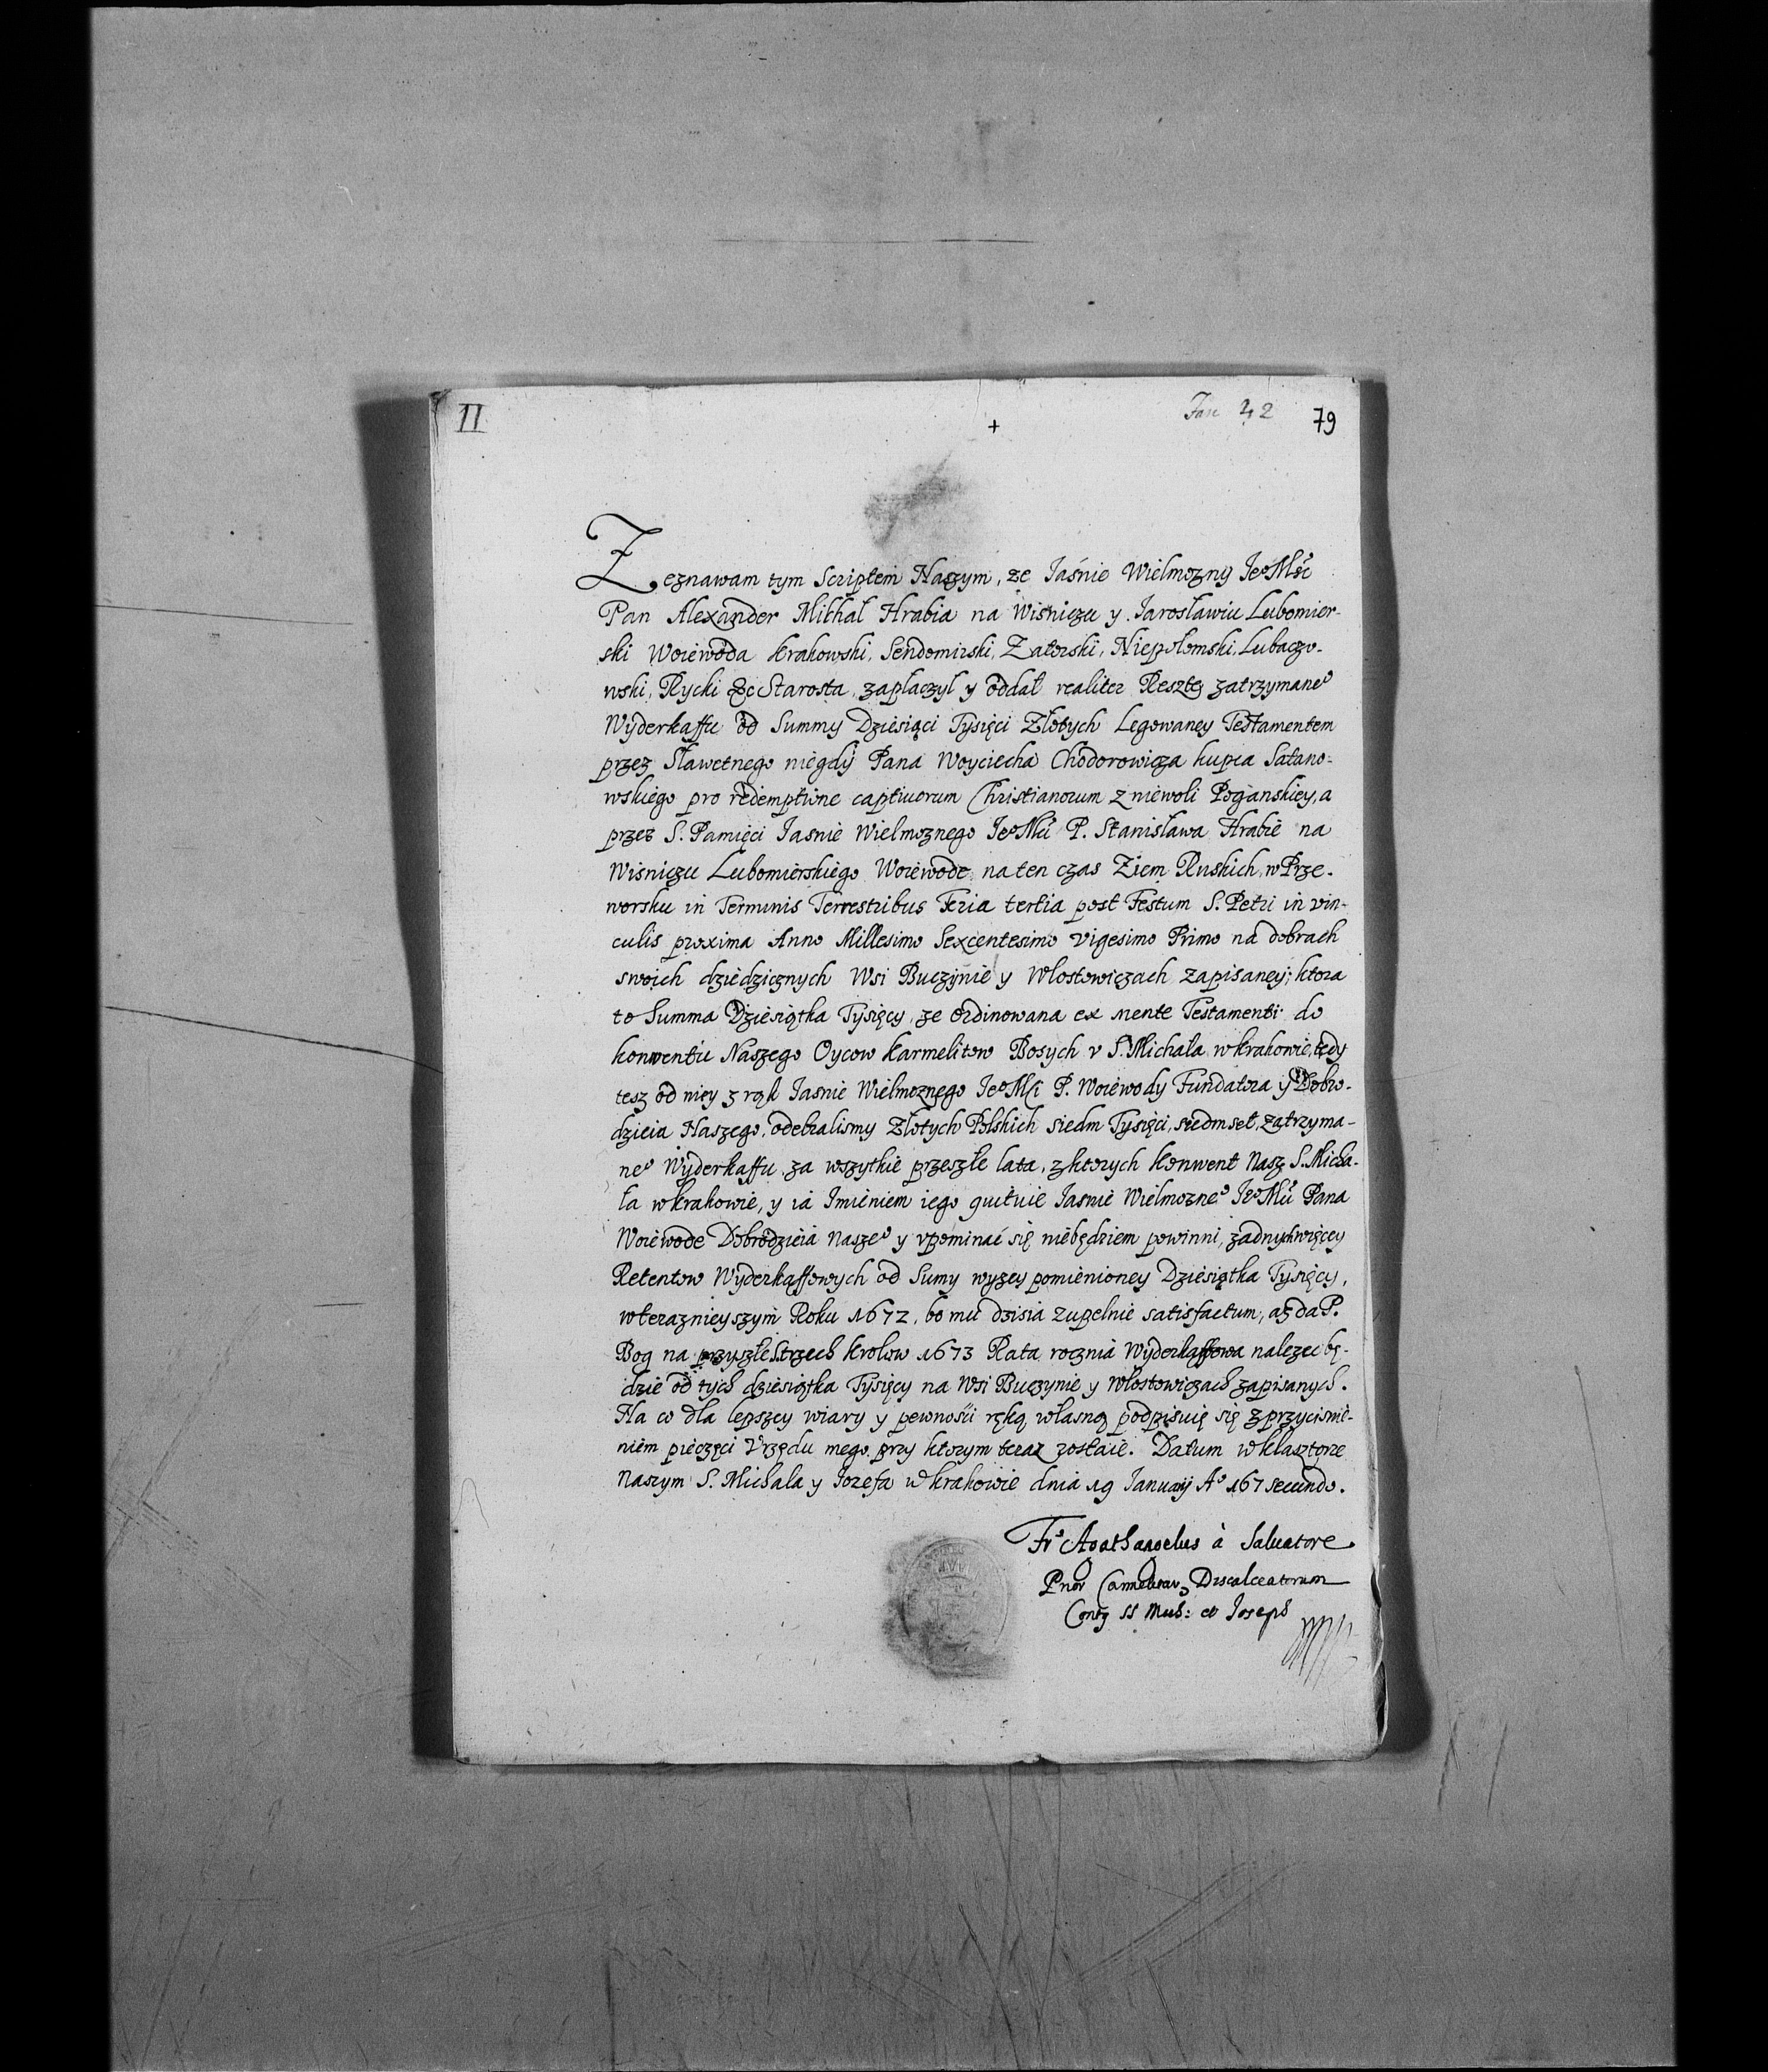 II + Jan 42 79
Zeznawam tym Scriptem Naszym, ze Jaśnie Wielmozny Jeº Mść
Pan Alexander Michał Hrabia na Wiśniczu y Jarosławiu Lubomier-
ski Woiewoda Krakowski, Sendomirski, Zatorski, Niepołomski, Lubaczo-
wski, Rycki &c Starosta, zapłaczył y oddał realiter Resztę zatrzymaneº
Wyderkaffu od Summy Dziesiąci Tysięci Złotych Legowaney Testamentem
przez Sławetnego niegdy Pana Woyciecha Chodorowicza kupca Satano-
wskiego pro redemptione captiuorum Christianorum z niewoli Poganskiey, a
przez S. Pamięci Jasnie Wielmoznego Jeº Mci P. Stanisława Hrabie na
Wisniczu Lubomierskiego Woiewode na ten czas Ziem Ruskich, w Prze-
worsku in Terminis Terrestribus Feria tertia post Festum S. Petri in vin-
culis proxima Anno Millesimo Sexcentesimo vigesimo Primo na dobrach
swoich dziedzicznych Wsi Buczynie y Włostowiczach zapisaney; ktora
to Summa Dziesiątka Tysięcy, ze ordinowana ex mente Testamenti do
konwentu Naszego Oycow Karmelitow Bosych v S. Michała w krakowie, tedy
tesz od niey z rąk Jasnie Wielmoznego Jeº Mci P. Woiewody Fundatora y Dobro-
dzieia Naszego, odebralismy Złotych Polskich siedm Tysięci, siedmset, zatrzyma-
neº Wyderkaffu za wszytkie przeszłe lata, z ktorych Konwent Nasz S. Micha-
ła w krakowie, y ia Imieniem iego quituie Jasnie Wielmozneº Jeº Mci Pana
Woiewode Dobrodzieia naszeº y vpominać się niebędziem powinni, zadnych więcey
Retentow Wyderkaffowych od Sumy wyzey pomienioney Dziesiątka Tysięcy,
w teraznieyszym Roku 1672, bo mu dzisia zupelnie satisfactum, aż da P.
Bog na przyszłe S. trzech krolow 1673 Rata rocznia Wyderkaffowa nalezec bę-
dzie od tych dziesiątka Tysięcy na Wsi Buczynie y Włostowiczach zapisanych.
Na co dla lepszey wiary y pewności ręką własną podpisuię się z przycisnie-
niem pieczęci Vrzędu mego przy ktorym teraz zostaie. Datum w klasztorze
naszym S. Michala y Jozefa w krakowie dnia 19 Januarij Aº 167 secundo.
Frº Agathangelus à Saluatore
Prior Carmelitar. Discalceatorum
SS Mich: et Joseph